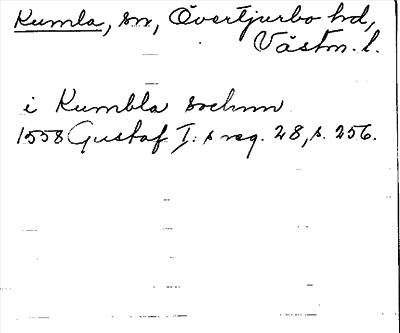 Kumla, sn, Övertjurbo hd,
Västm. l.
i Kumbla sochnn
1558 Gustaf I: s reg. 28, s. 256.